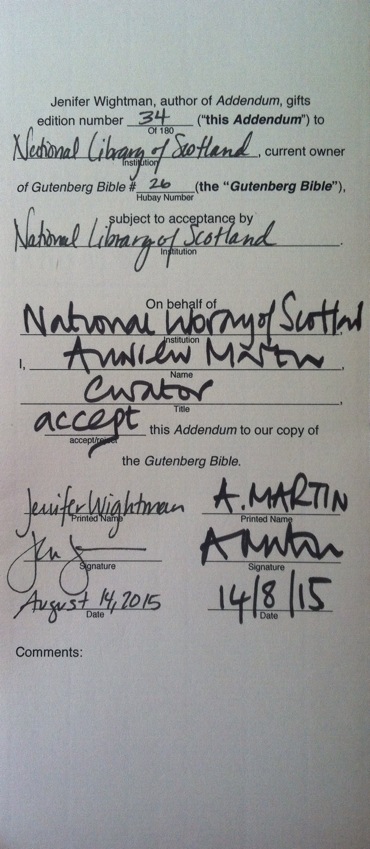 Jenifer Wightman, author of Addendum, gifts
edition number 34 ("this Addendum") to
Of 180
National Library of Scotland, current owner
Institution
of Gutenberg Bible # 26 (the "Gutenberg Bible"),
Hubay Number
subject to acceptance by
National Library of Scotland.
Institution
On behalf of
National Library of Scotland
Institution
I, Andrew Martin,
Name
Curator,
Title
accept this Addendum to our copy of
accept/reject
the Gutenberg Bible.
Jenifer Wightman A. MARTIN
Printed Name Printed Name
Jen J A Martin
Signature Signature
August 14, 2015 14/8/15
Date Date
Comments: